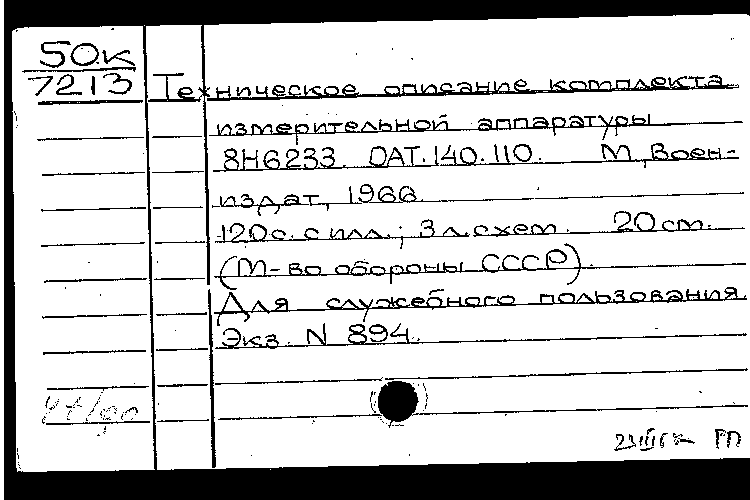 50к
7213
Техническое описание комплекта
измерительной аппаратуры
8Н6233. ОАТ.140.110. М., Воен-
издат, 1966.
120с. с илл.; 3 л.схем. 20 см.
(М-во обороны СССР).
Для служебного пользования
Экз. N 894.
РП